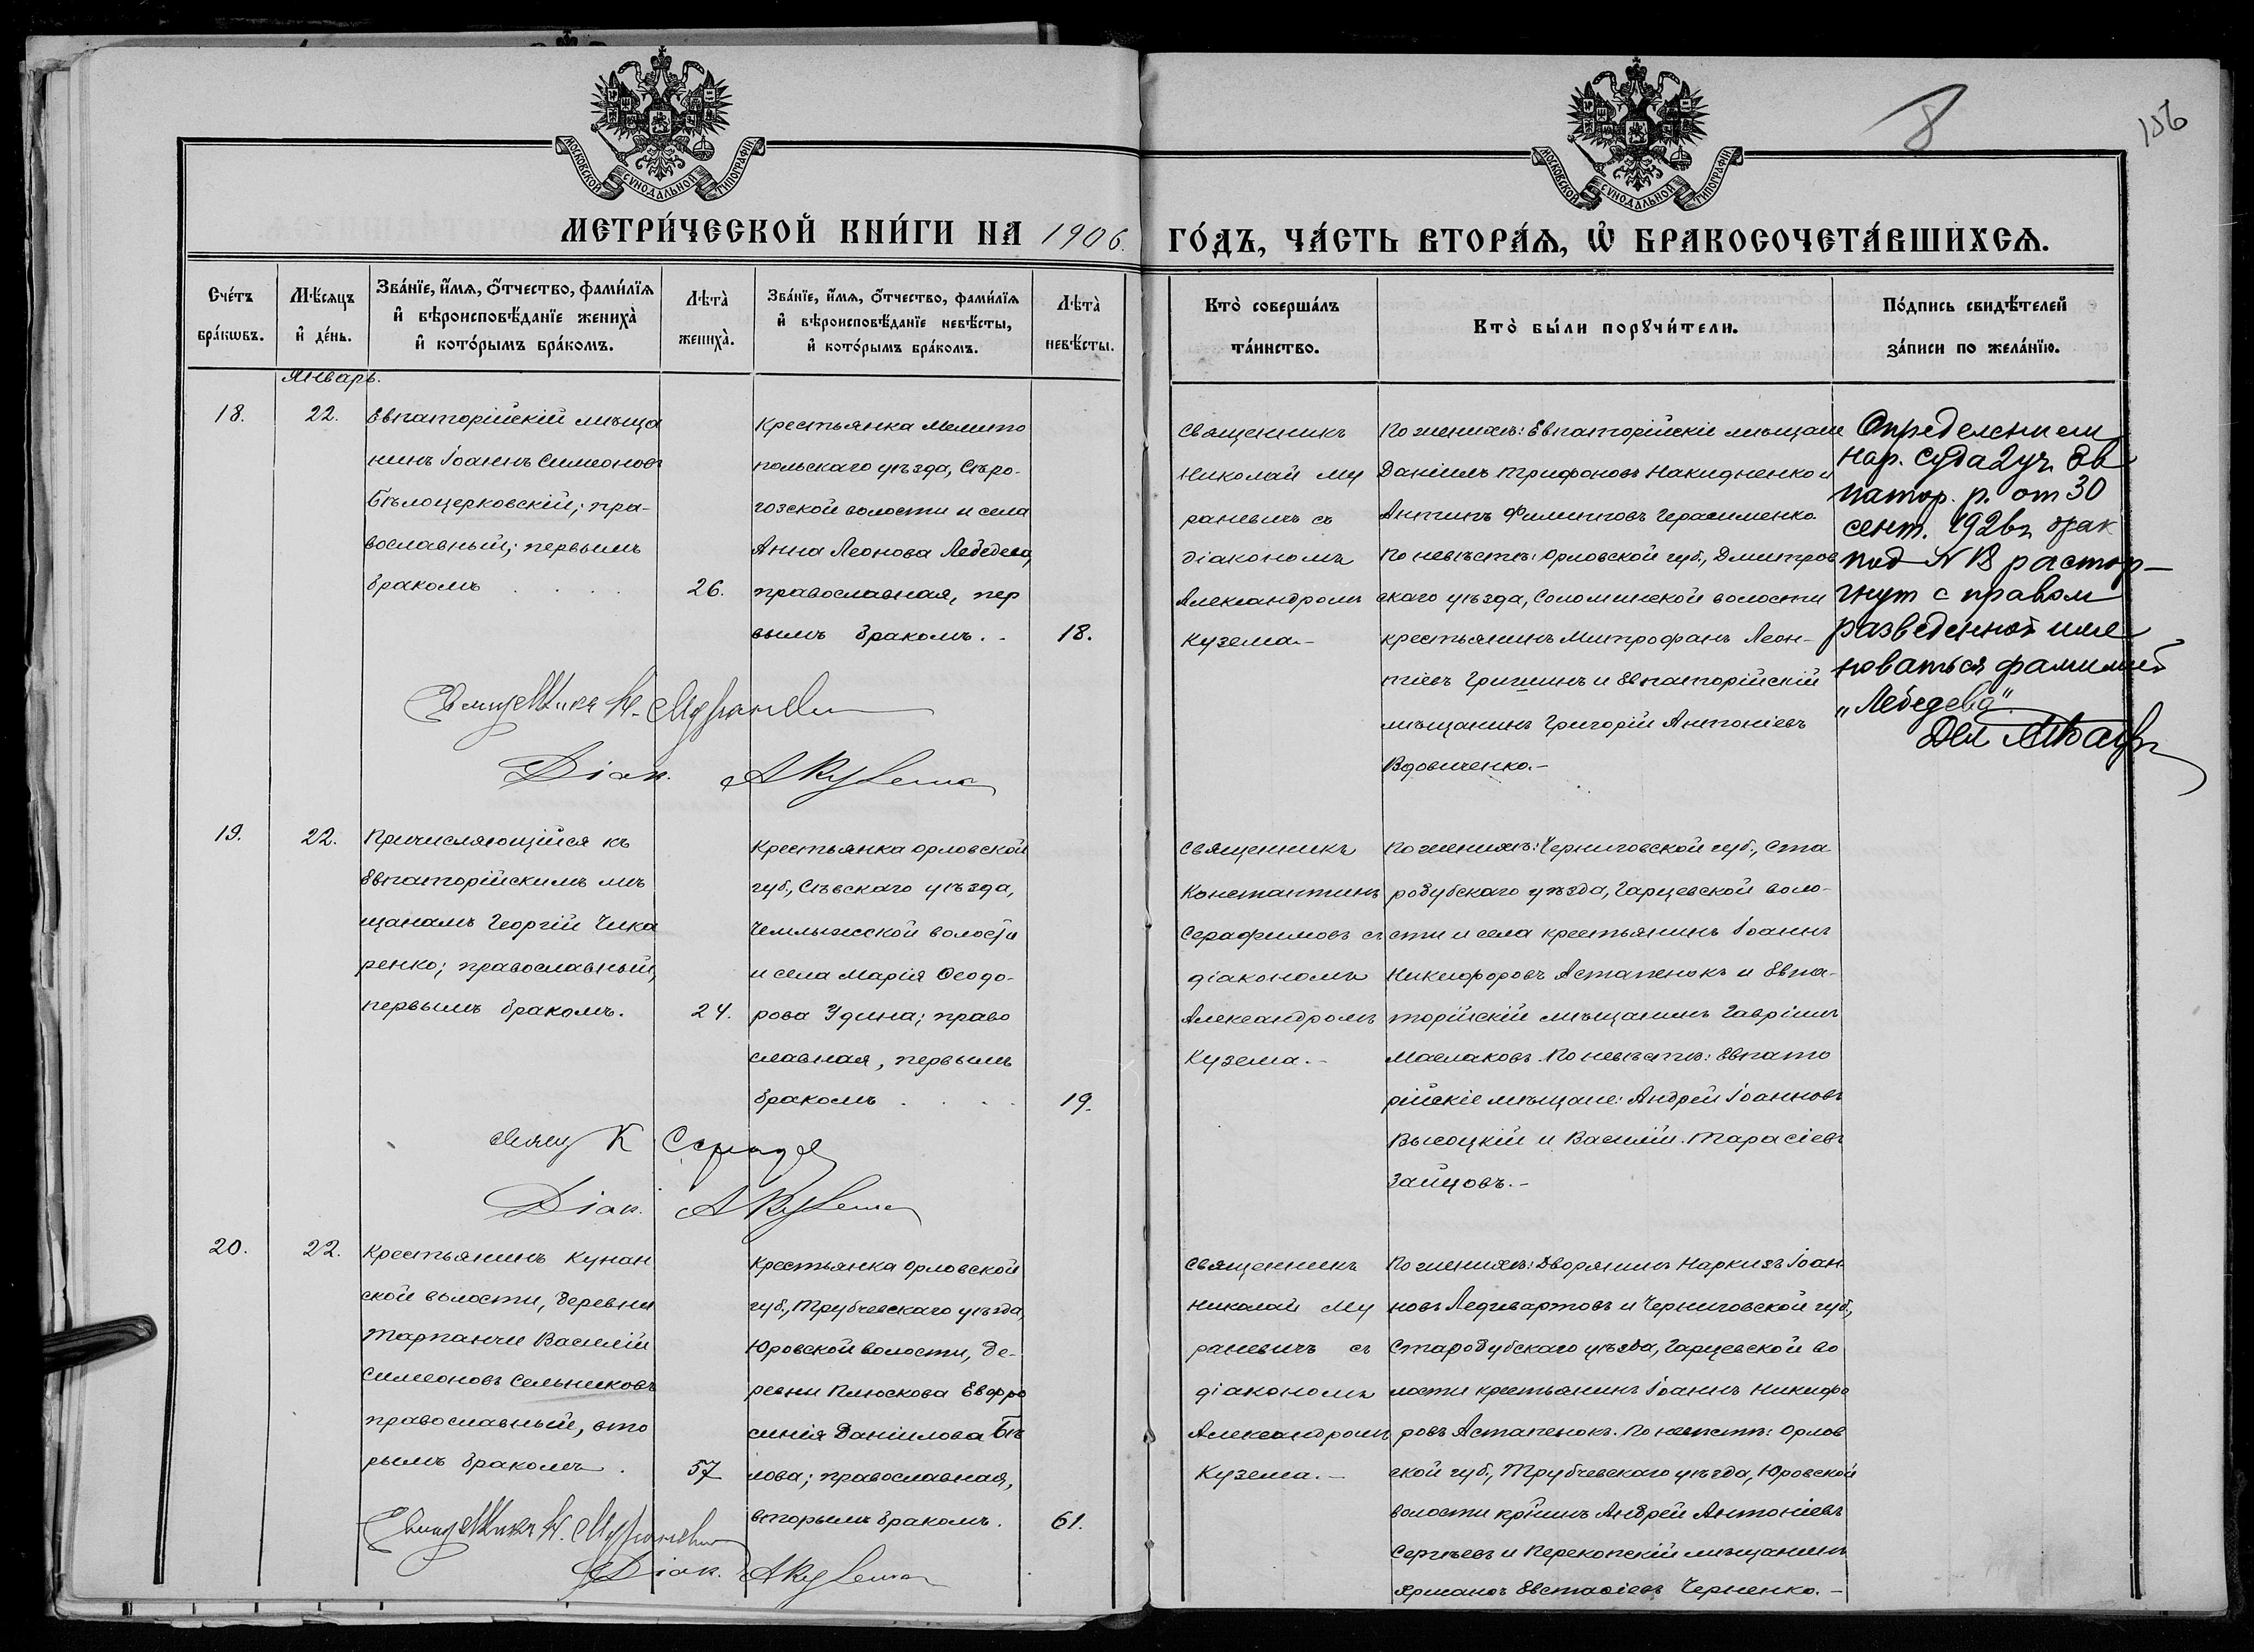 МОСКОВСКОЙ СѴНОДАЛЬНОЙ ТИПОГРАФІИ
МОСКОВСКОЙ СѴНОДАЛЬНОЙ ТИПОГРАФІИ
8
МЕТРИ́ЧЕСКОЙ КНИ́ГИ НА 1906.
ГО́ДЪ, ЧА́СТЬ ВТОРА́Ѧ, Ѽ БРАКОСОЧЕТА́ВШИХСѦ.
Сче́тъ бра́кѡвъ.
Мѣ́сѧцъ и҆ де́нь.
Зва́нїе, и҆́мѧ, ѻ҆́тчество, фами́лїѧ
и҆ вѣроисповѣ́данїе жениха̀
и҆ кото́рымъ бра́комъ.
Лѣ́та̀ жениха̀.
Зва́нїе, и҆́мѧ, ѻ҆́тчество, фами́лїѧ
и҆ вѣроисповѣ́данїе невѣ́сты,
и҆ кото́рымъ бра́комъ.
Лѣ́та̀ невѣ́сты.
Кто̀ соверша́лъ
та́инство.
Кто̀ бы́ли порꙋчи́тели.
По́дпись свидѣ́телей
за́писи по жела́нїю.
Январь.
18.
22.
Евпаторійскій мѣща
нинъ Іоаннъ Симеоновъ
Бѣлоцерковскій; пра-
вославный; первымъ
бракомъ . . . .
26.
Крестьянка Мелито
польскаго уѣзда, Сѣро-
гозской волости и села
Анна Леонова Лебедева,
православная, пер
вымъ бракомъ. .
18.
Священникъ
Николай Му
раневичъ съ
діакономъ
Александромъ
Кузема.-
По женихѣ: Евпаторійскіе мѣщане
Даніилъ Трифоновъ Накидненко и
Антипъ Филипповъ Герасименко.
По невѣстѣ: Орловской губ., Дмитров
скаго уѣзда, Соломинской волости
крестьянинъ Митрофанъ Леон-
тіевъ Гришинъ и Евпаторійскій
мѣщанинъ Григорій Антоніевъ
Вдовиченко.-
Определением
Нар. суда 2 уч. Ев
патор. р. от 30
сент. 1926 г. брак
под № 18 растор-
гнут с правом
разведенной име
новаться фамилией
„Лебедева".
Священникъ Н. Мураневичъ
Діак. А Кузема
19.
22.
Причисляющійся къ
Евпаторійскимъ мѣ
щанамъ Георгій Чика
ренко; православный,
первымъ бракомъ.
24.
Крестьянка Орловской
губ., Сѣвскаго уѣзда,
Чемлыжской волости
и села Марія Ѳеодо-
рова Удина; право
славная, первымъ
бракомъ . . . .
19.
Священникъ
Константинъ
Серафимовъ съ
діакономъ
Александромъ
Кузема.-
По женихѣ: Черниговской губ., Ста
родубскаго уѣзда, Гарцевской воло-
сти и села крестьянинъ Іоаннъ
Никифоровъ Астапенокъ и Евпа-
торійскій мѣщанинъ Гавріилъ
Маслаковъ. По невѣстѣ: Евпато
рійскіе мѣщане: Андрей Іоанновъ
Высоцкій и Василій Тарасіевъ
Зайцовъ.-
Свящ К
Діак. А Кузема
20.
22.
Крестьянинъ Кунан
ской волости, деревни
Тарпанчи Василій
Симеоновъ Сельниковъ
православный, вто
рымъ бракомъ .
57
Крестьянка Орловской
губ., Трубчевскаго уѣзда,
Юровской волости, де-
ревни Плюскова Евфро
синія Даніилова Бѣ
лова; православная,
вторымъ бракомъ.
61.
Священникъ
Николай Му
раневичъ съ
діакономъ
Александромъ
Кузема.-
По женихѣ: Дворянинъ Наркизъ Іоан
новъ и Черниговской губ.,
Стародубскаго уѣзда, Гарцевской во
лости крестьянинъ Іоаннъ Никифо
ровъ Астапенокъ. По невѣстѣ: Орлов
ской губ., Трубчевскаго уѣзда, Юровской
волости кр-нинъ Андрей Антоніевъ
Сергѣевъ и Перекопскій мѣщанинъ
Евстафіевъ Черненко.-
Священникъ Н. Мураневичъ
Діак. А Кузема